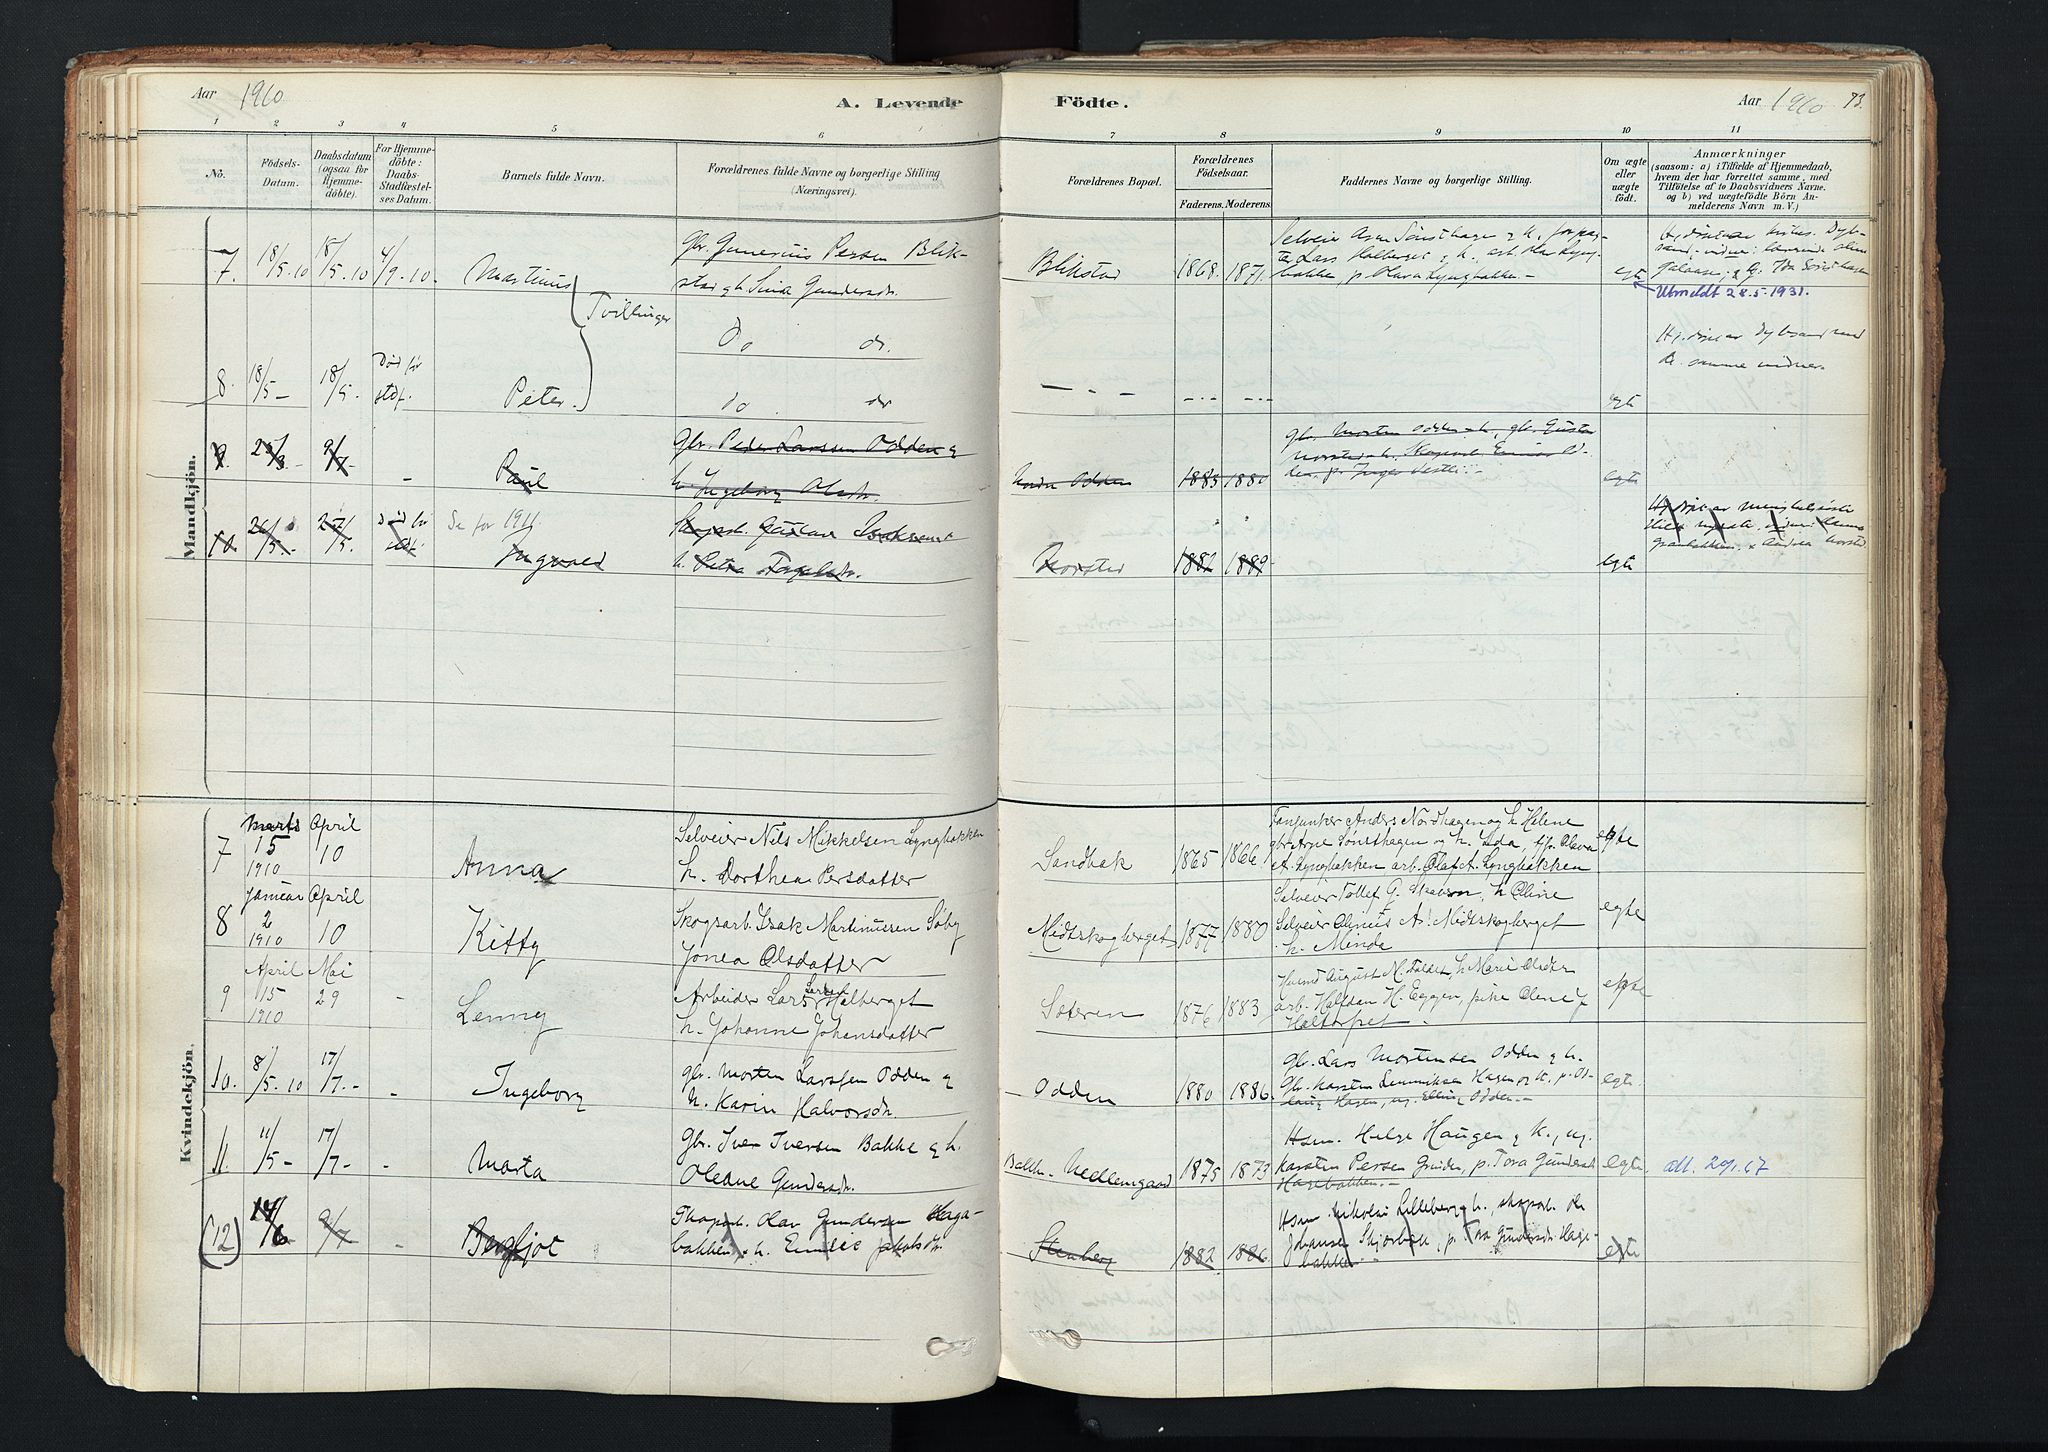 Aar 1910
A. Levende
Födte.
Aar 1910
73.
1 2 3 4 5 6 7 8 9 10 11
No.
Födsels-
Datum.
Daabsdatum
(ogsaa for
Hjemme-
döbte).
For Hjemme-
döbte:
Daabs-
Stadfæstel-
ses Datum.
Barnets fulde Navn.
Forældrenes fulde Navne og borgerlige Stilling
(Næringsvei).
Forældrenes Bopæl.
Forældrenes
Födselsaar.
Faderens. Moderens.
Faddernes Navne og borgerlige Stilling.
Om ægte
eller
uægte
födt.
Anmærkninger
(saasom: a) i Tilfælde af Hjemmedaab,
hvem der har forrettet samme, med
Tilföielse af to Daabsvidners Navne.
og b) ved uægtefödte Börn An-
melderens Navn m. V.)
Mandkjön.
7. 18/5.10 18/5.10 4/9.10. Martinus
Tvillinger
Gbr. Gunerius Persen Blik-
stad og h. Sina Gundersdr.
Blikstad 1868. 1871.
Selveier Arne Sønsthagen og h.,
Lars Halberget og h., arb. Olav Lyng-
bakke, p. Olava Lyngbakken.-
egte
Utmeldt 28.5.1931.
Do dr.
Hj. døpt av Dybsand med
samme vidner.
8. 18/5- 18/5. Død før
stdf. Peter.
do dr
- - - -.- -.- egte
9. 25/3- 9/7- - Paul
Gbr. Peder Larssen Odden og
h. Ingeborg Olsdr.
Odden 1885 1880
gbr. Morten Odden og h., gbr. Gustav
Norstad og h., Skogsarb. Einar Od-
den, p. Inga
egte
10. 26/5- 27/5. Død før
stdf. Se for 1911.
Ingvald
Skogsarb. Gustav Isaksen og
h. Petra
Norstad 1882 1889 egte
Kvindekjön.
7 Marts
15
1910 April
10 Anna
Selveier Nils Mikkelsen Lyngbakken
h. Dorthea Persdatter
Sandbak 1865 1866
Fanjunker Anders Nordhagen og h. Helene
gbr Arne Sønsthagen og h. Ida, Olava
A. Lyngbakken arb. Olaf A. Lyngbakken
egte
8 Januar
2
1910 April
10 Kitty
Skogsarb. Isak Martinussen Söby
Jonea Olsdatter
Midtskogberget 1877 1880
Selveier Tollef G. h. Oline
Selveier Olinus A. Midtskogberget
h. Minda
egte
9 April
15
1910 Mai
29 - Lenny
Arbeider Lars Larsen Halberget
h. Johanne Johansdatter
Sæteren 1876 1883
August M. Faldet, h. Marie Olsdtr
arb. Halfdan H. Eggen, pike Oline J
Haltorpet.
egte
10. 8/5.10 17/7.- - Ingeborg
gbr. Morten Larssen Odden og
h. Karin Halvorsdr.
Odden 1880 1886.
Gbr. Lars Mortensen Odden og h.
Gbr. Karsten Hagen og h. p. Os-
laug Hagen, ug. Elling Odden.-
egte.
11. 11/5- 17/7- - Marta
Gbr. Iver Iversen Bakke og h.
Oleane Gundersdr.
Bakke- Nedlemgaard 1875 1873
Hsm. Helge Haugen og h., ug.
Karsten Persen Grinden, p. Tora Gundersdr.
Hagebakken.-
egte. att. 20/1.67
(12) 14/6 9/7 - Bergljot
Skogsarb. Olav Gundersen Haga-
bakken og h. Emilie Jakobsdr.
Stenberg 1882 1886
Hsm. Nikolai Lilleberg og h., skogsarb. Ole
Johansen Skjærbæk, p. Tora Gundersdr. Hage-
bakken
egte